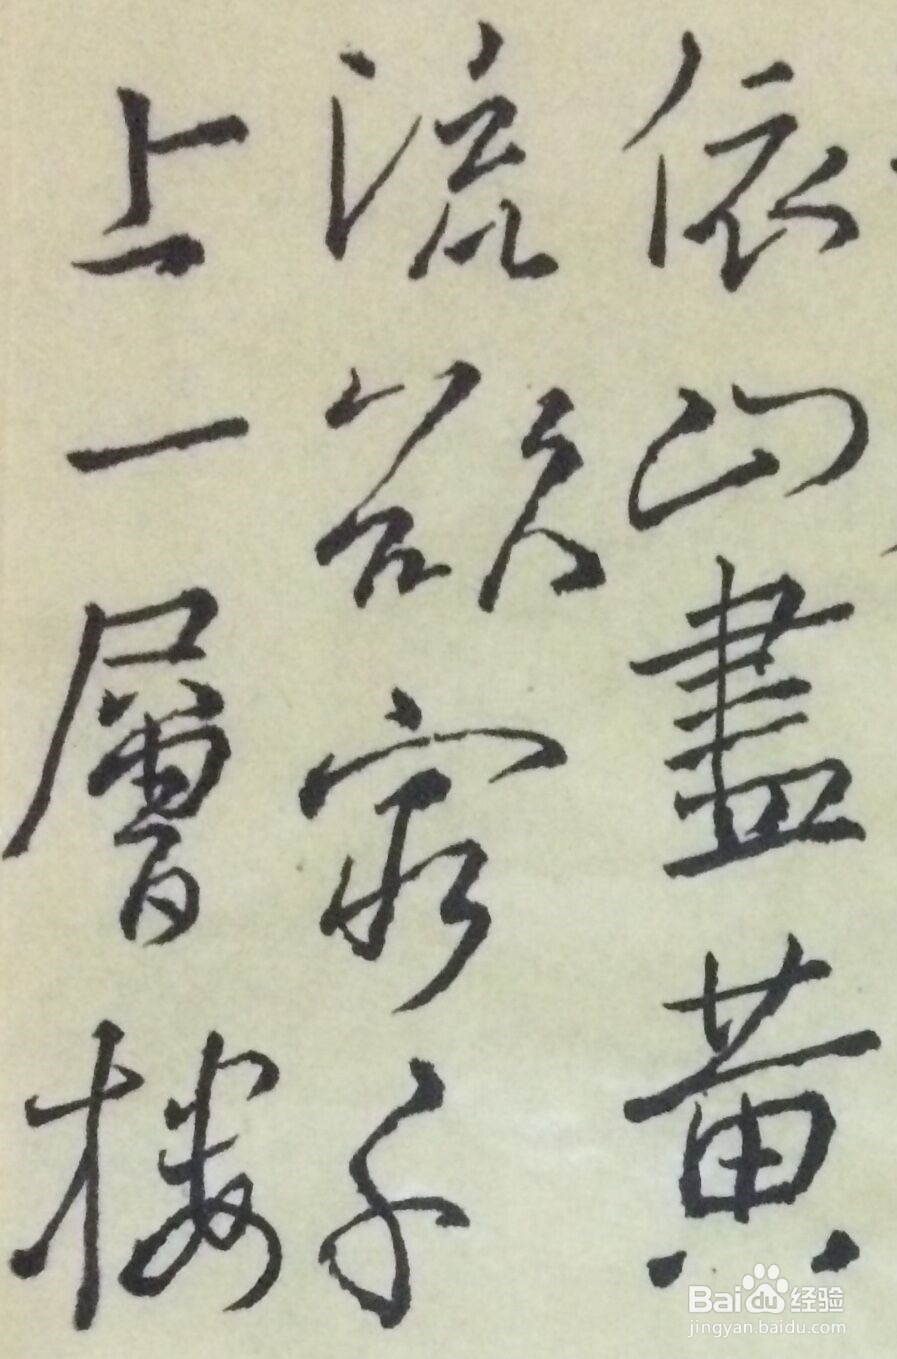 依山盡黄
流欲窮千
上一層樓
Baidu经验
jingyan.baidu.com